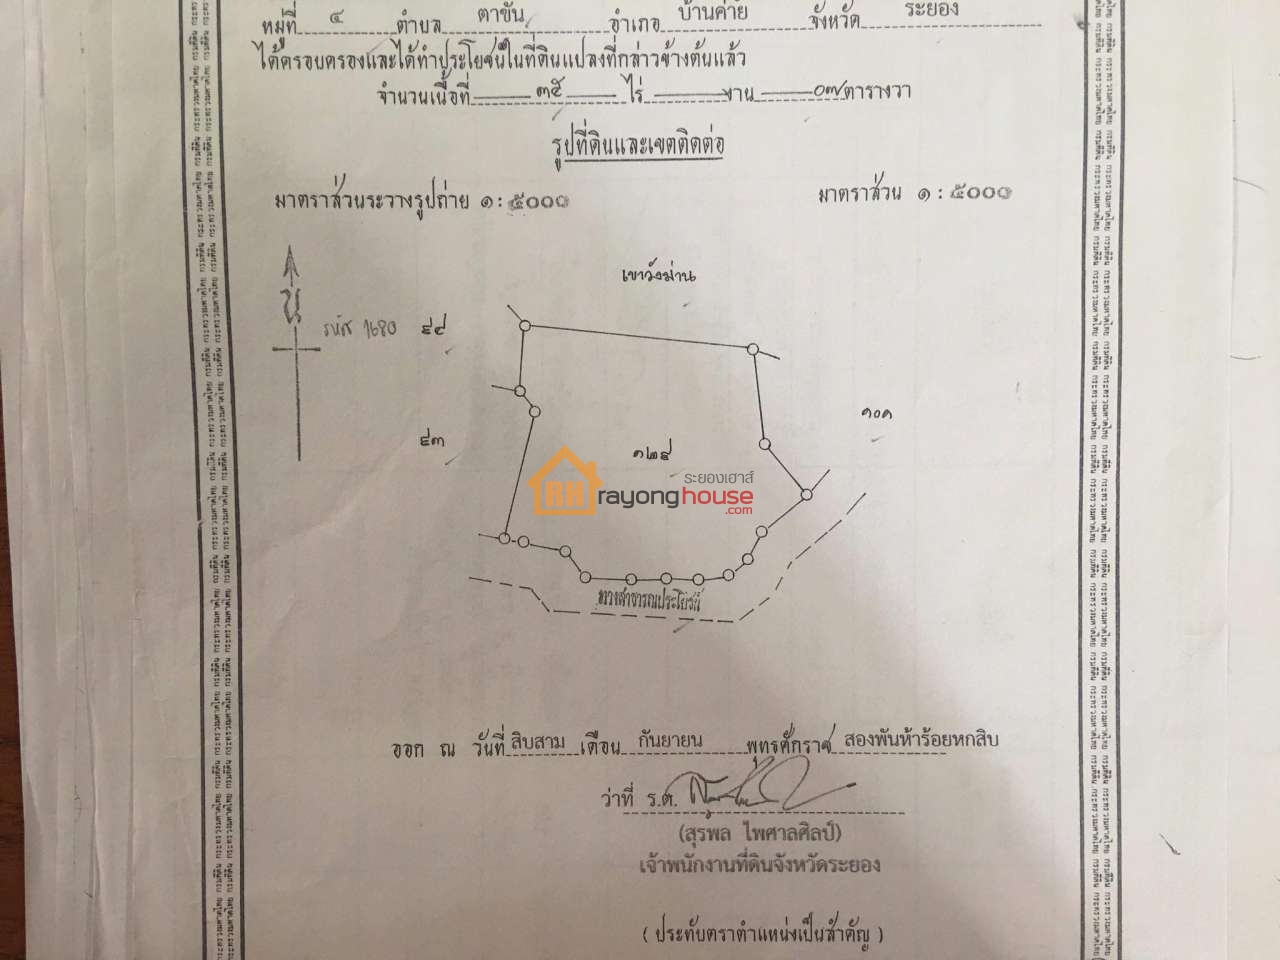 หมู่ที่ ๔ ตำบล ตาขัน อำเภอ บ้านค่าย จังหวัด ระยอง
ได้ครอบครองและได้ทำประโยชน์ในที่ดินแปลงที่กล่าวข้างต้นแล้ว
จำนวนเนื้อที่ ๓๕ ไร่ งาน ๐๗ ตารางวา
รูปที่ดินและเขตติดต่อ
มาตราส่วนระวางรูปถ่าย ๑ : ๕๐๐๐
มาตราส่วน ๑ : ๕๐๐๐
เขาวังม่าน
น
รหัส 1680
๙๔
๙๓
๑๐๑
๑๒๙
ระยองเฮาส์
RH rayonghouse.com
ทางสาธารณประโยชน์
ออก ณ วันที่ สิบสาม เดือน กันยายน พุทธศักราช สองพันห้าร้อยหกสิบ
ว่าที่ ร.ต.
(สุรพล ไพศาลศิลป์)
เจ้าพนักงานที่ดินจังหวัดระยอง
( ประทับตราตำแหน่งเป็นสำคัญ )